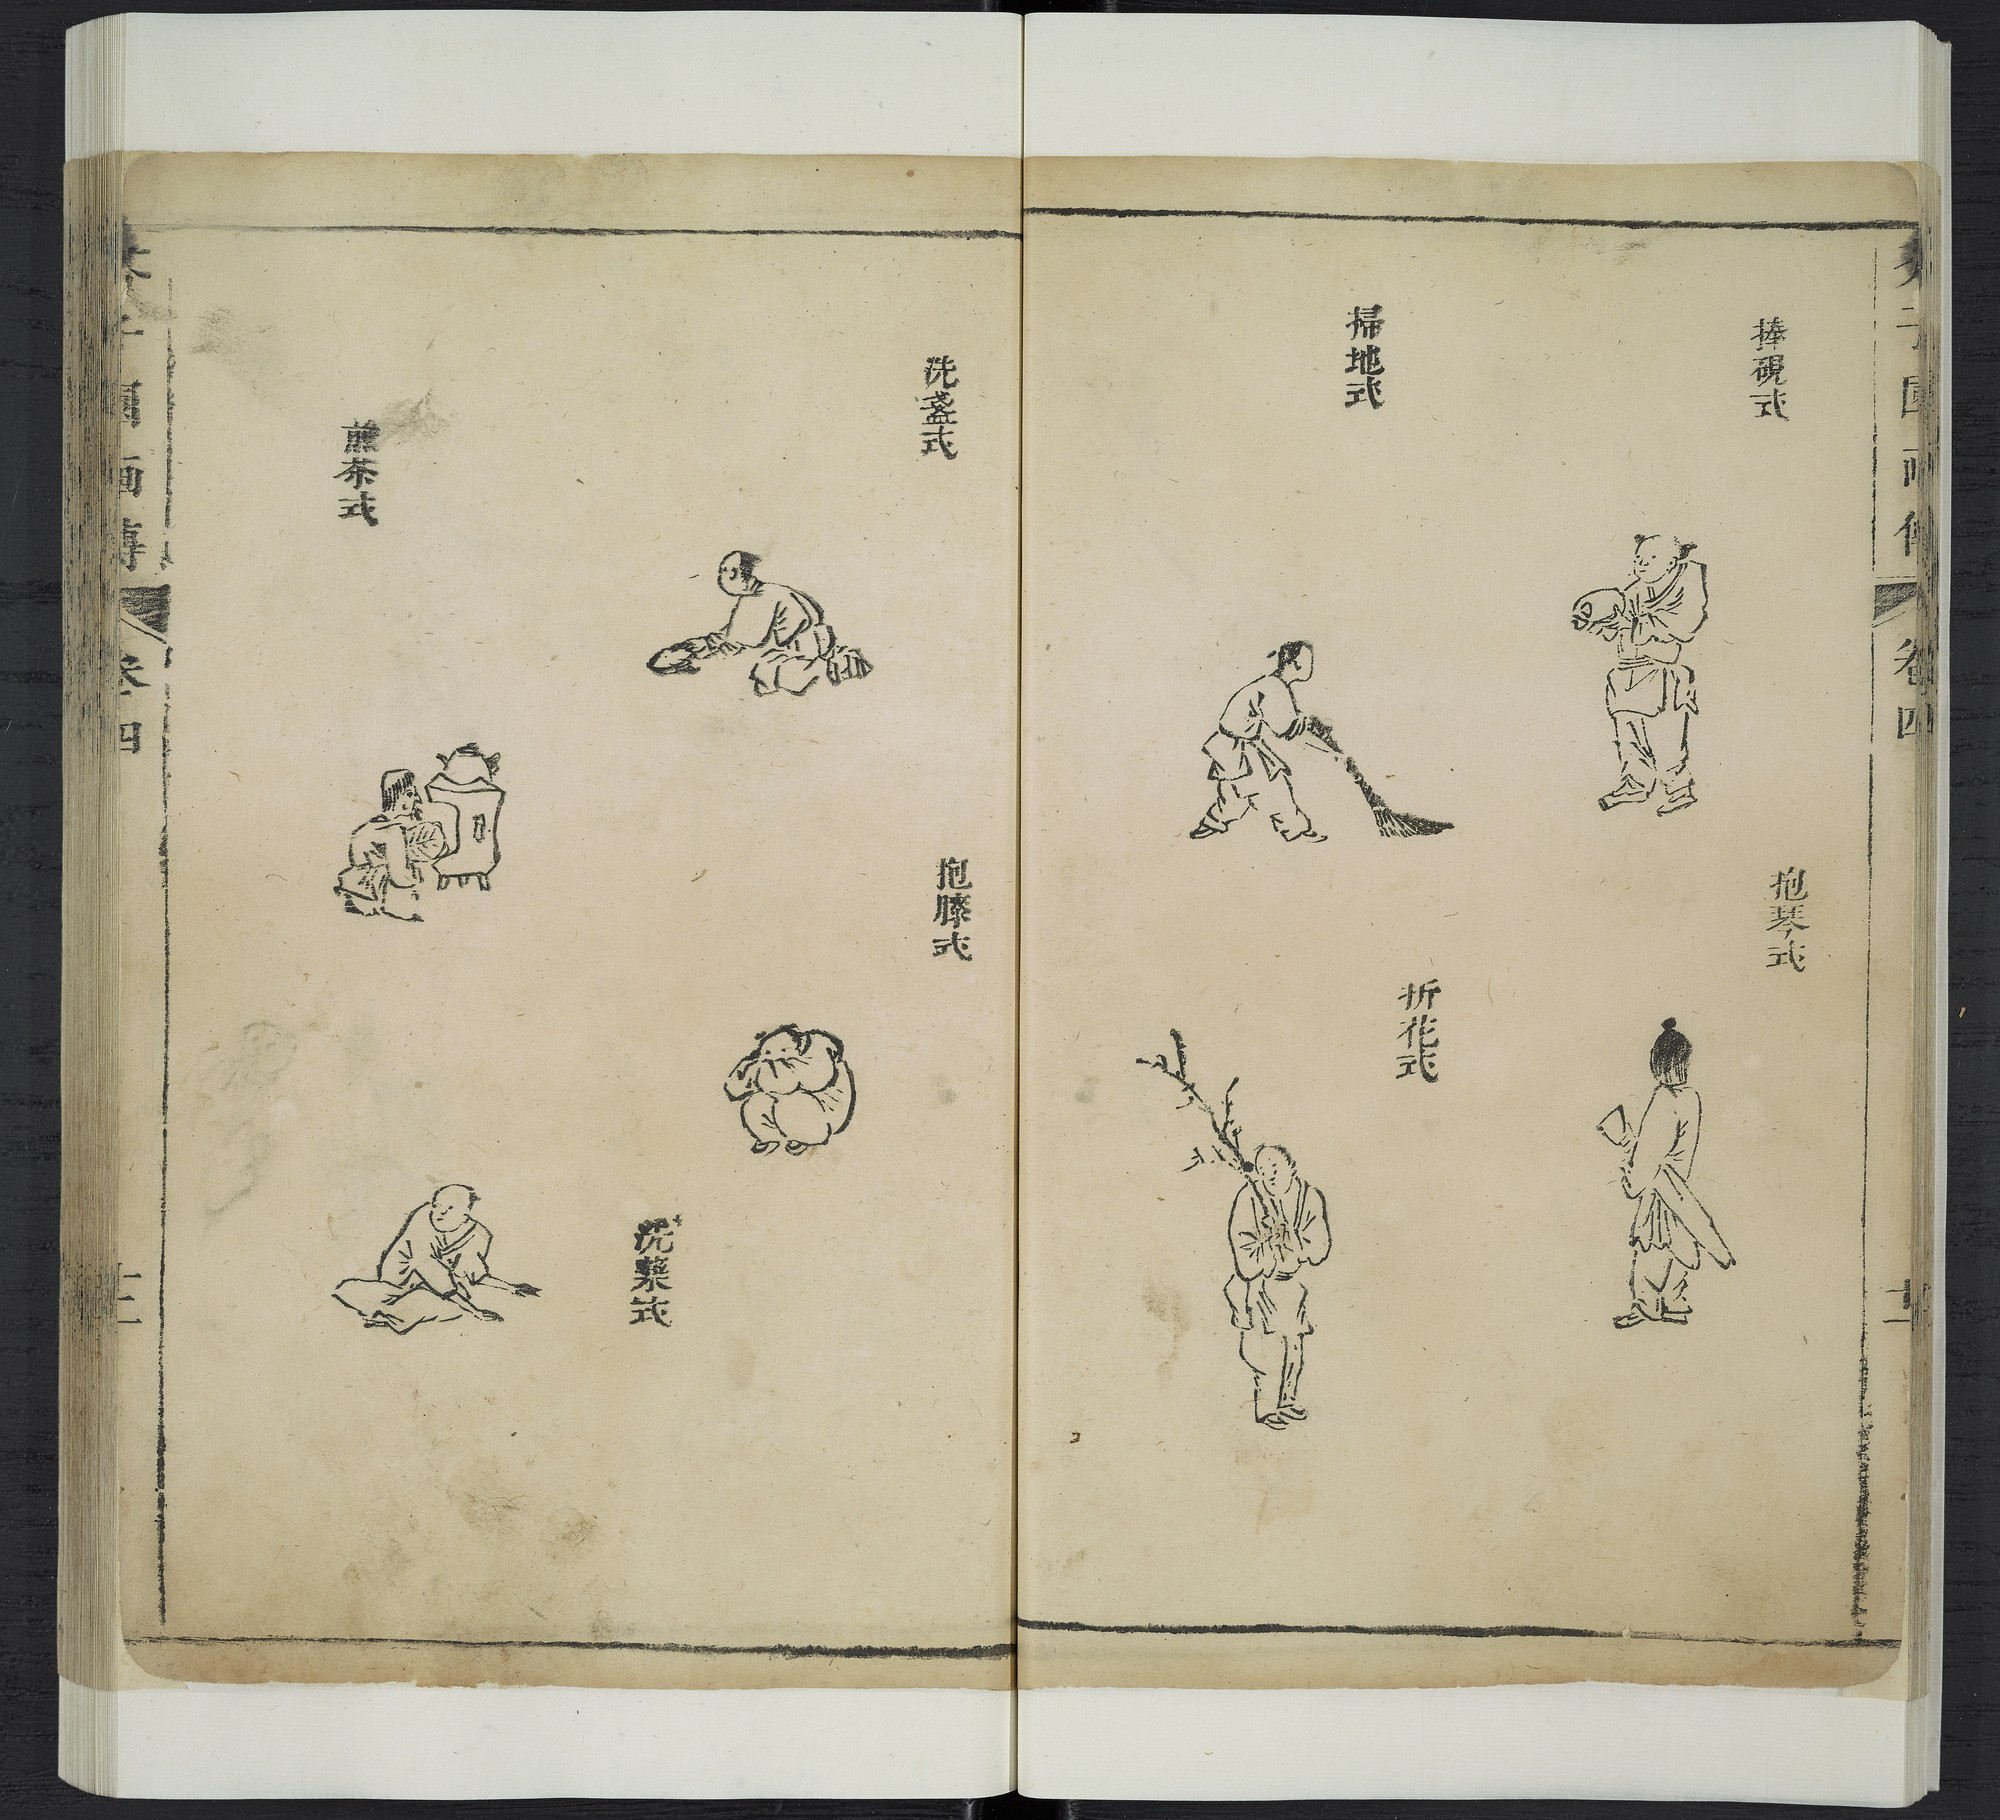 芥子園画傳
卷四
捧硯式
抱琴式
掃地式
折花式
洗盞式
抱膝式
洗藥式
煎茶式
芥子園画傳
卷四
十二